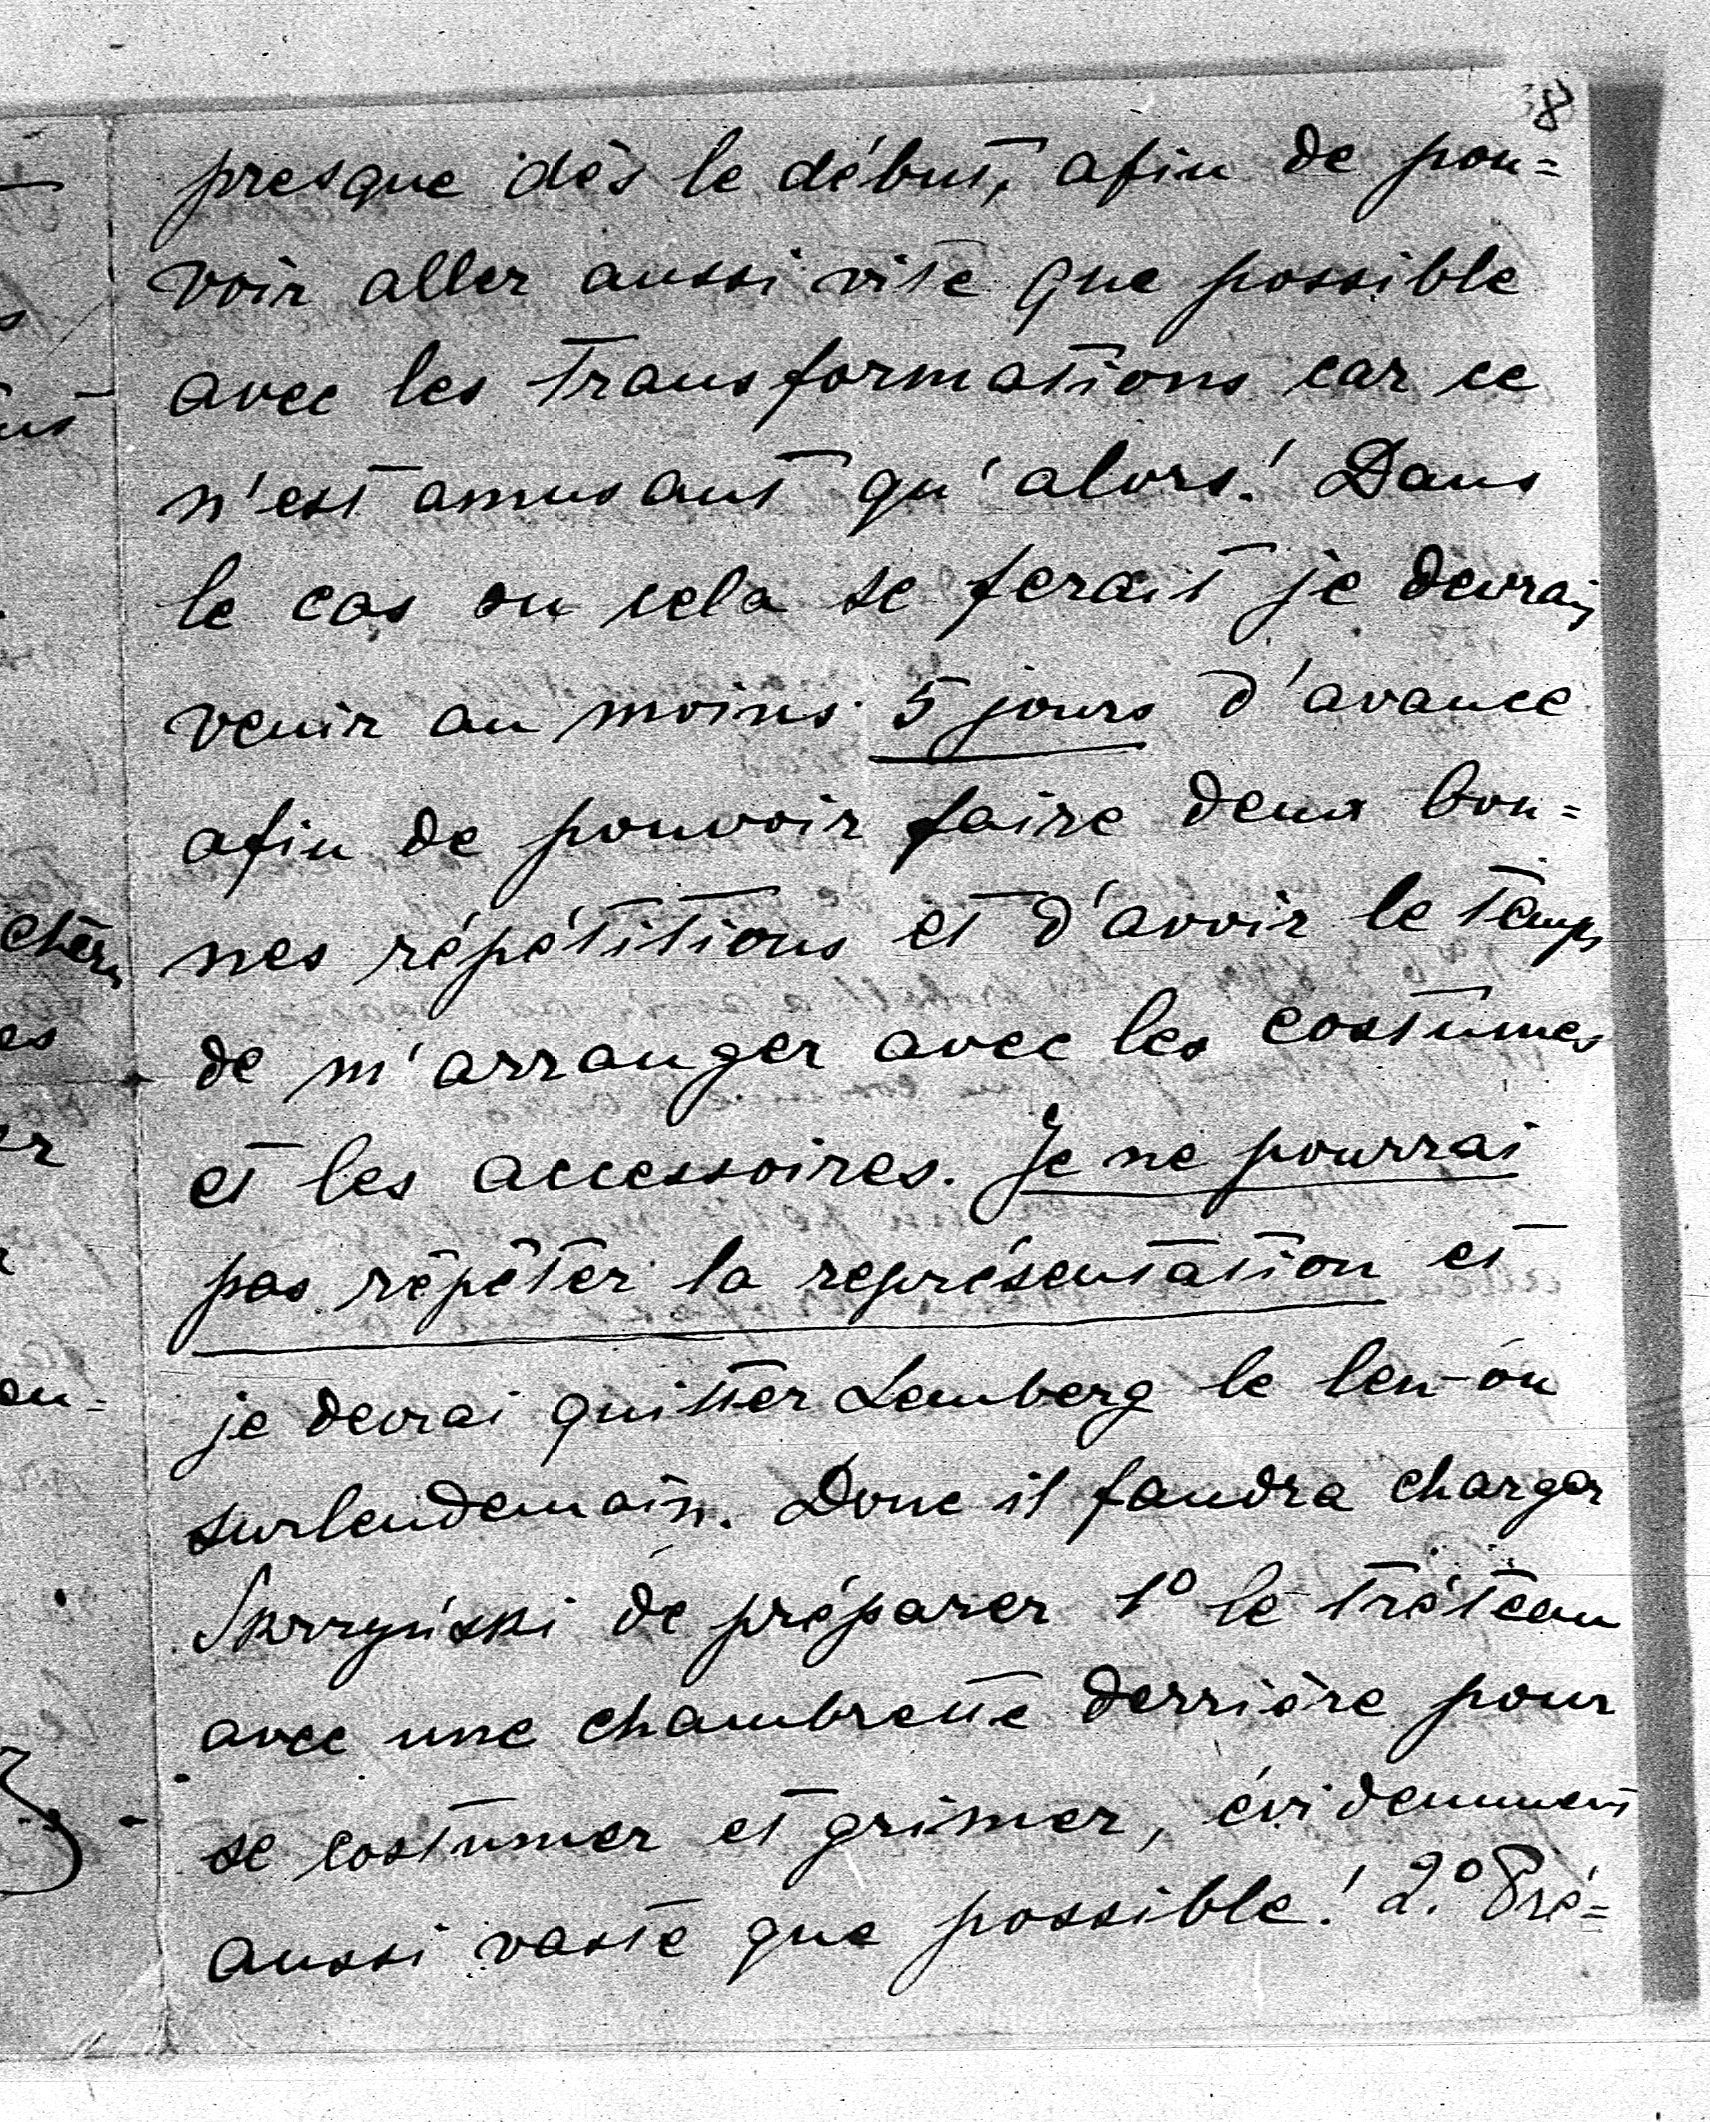 8
presque dès le début, afin de pou=
voir aller aussi vite que possible
avec les transformations car ce
n'est amusant qu'alors! Dans
le cas ou cela se ferait je devrai
venir au moins 5 jours d'avance
afin de pouvoir faire deux bon=
nes répétitions et d'avoir le temps
de m'arranger avec les costumes
et les accessoires. Je ne pourrai
pas répéter la représentation et
je devrai quitter Lemberg le len- ou
surlendemain. Donc il faudra charger
Skrzyński de préparer 1° le tréteau
avec une chambrette derrière pour
se costumer et grimer, évidemment
aussi vaste que possible! 2.° Pré=